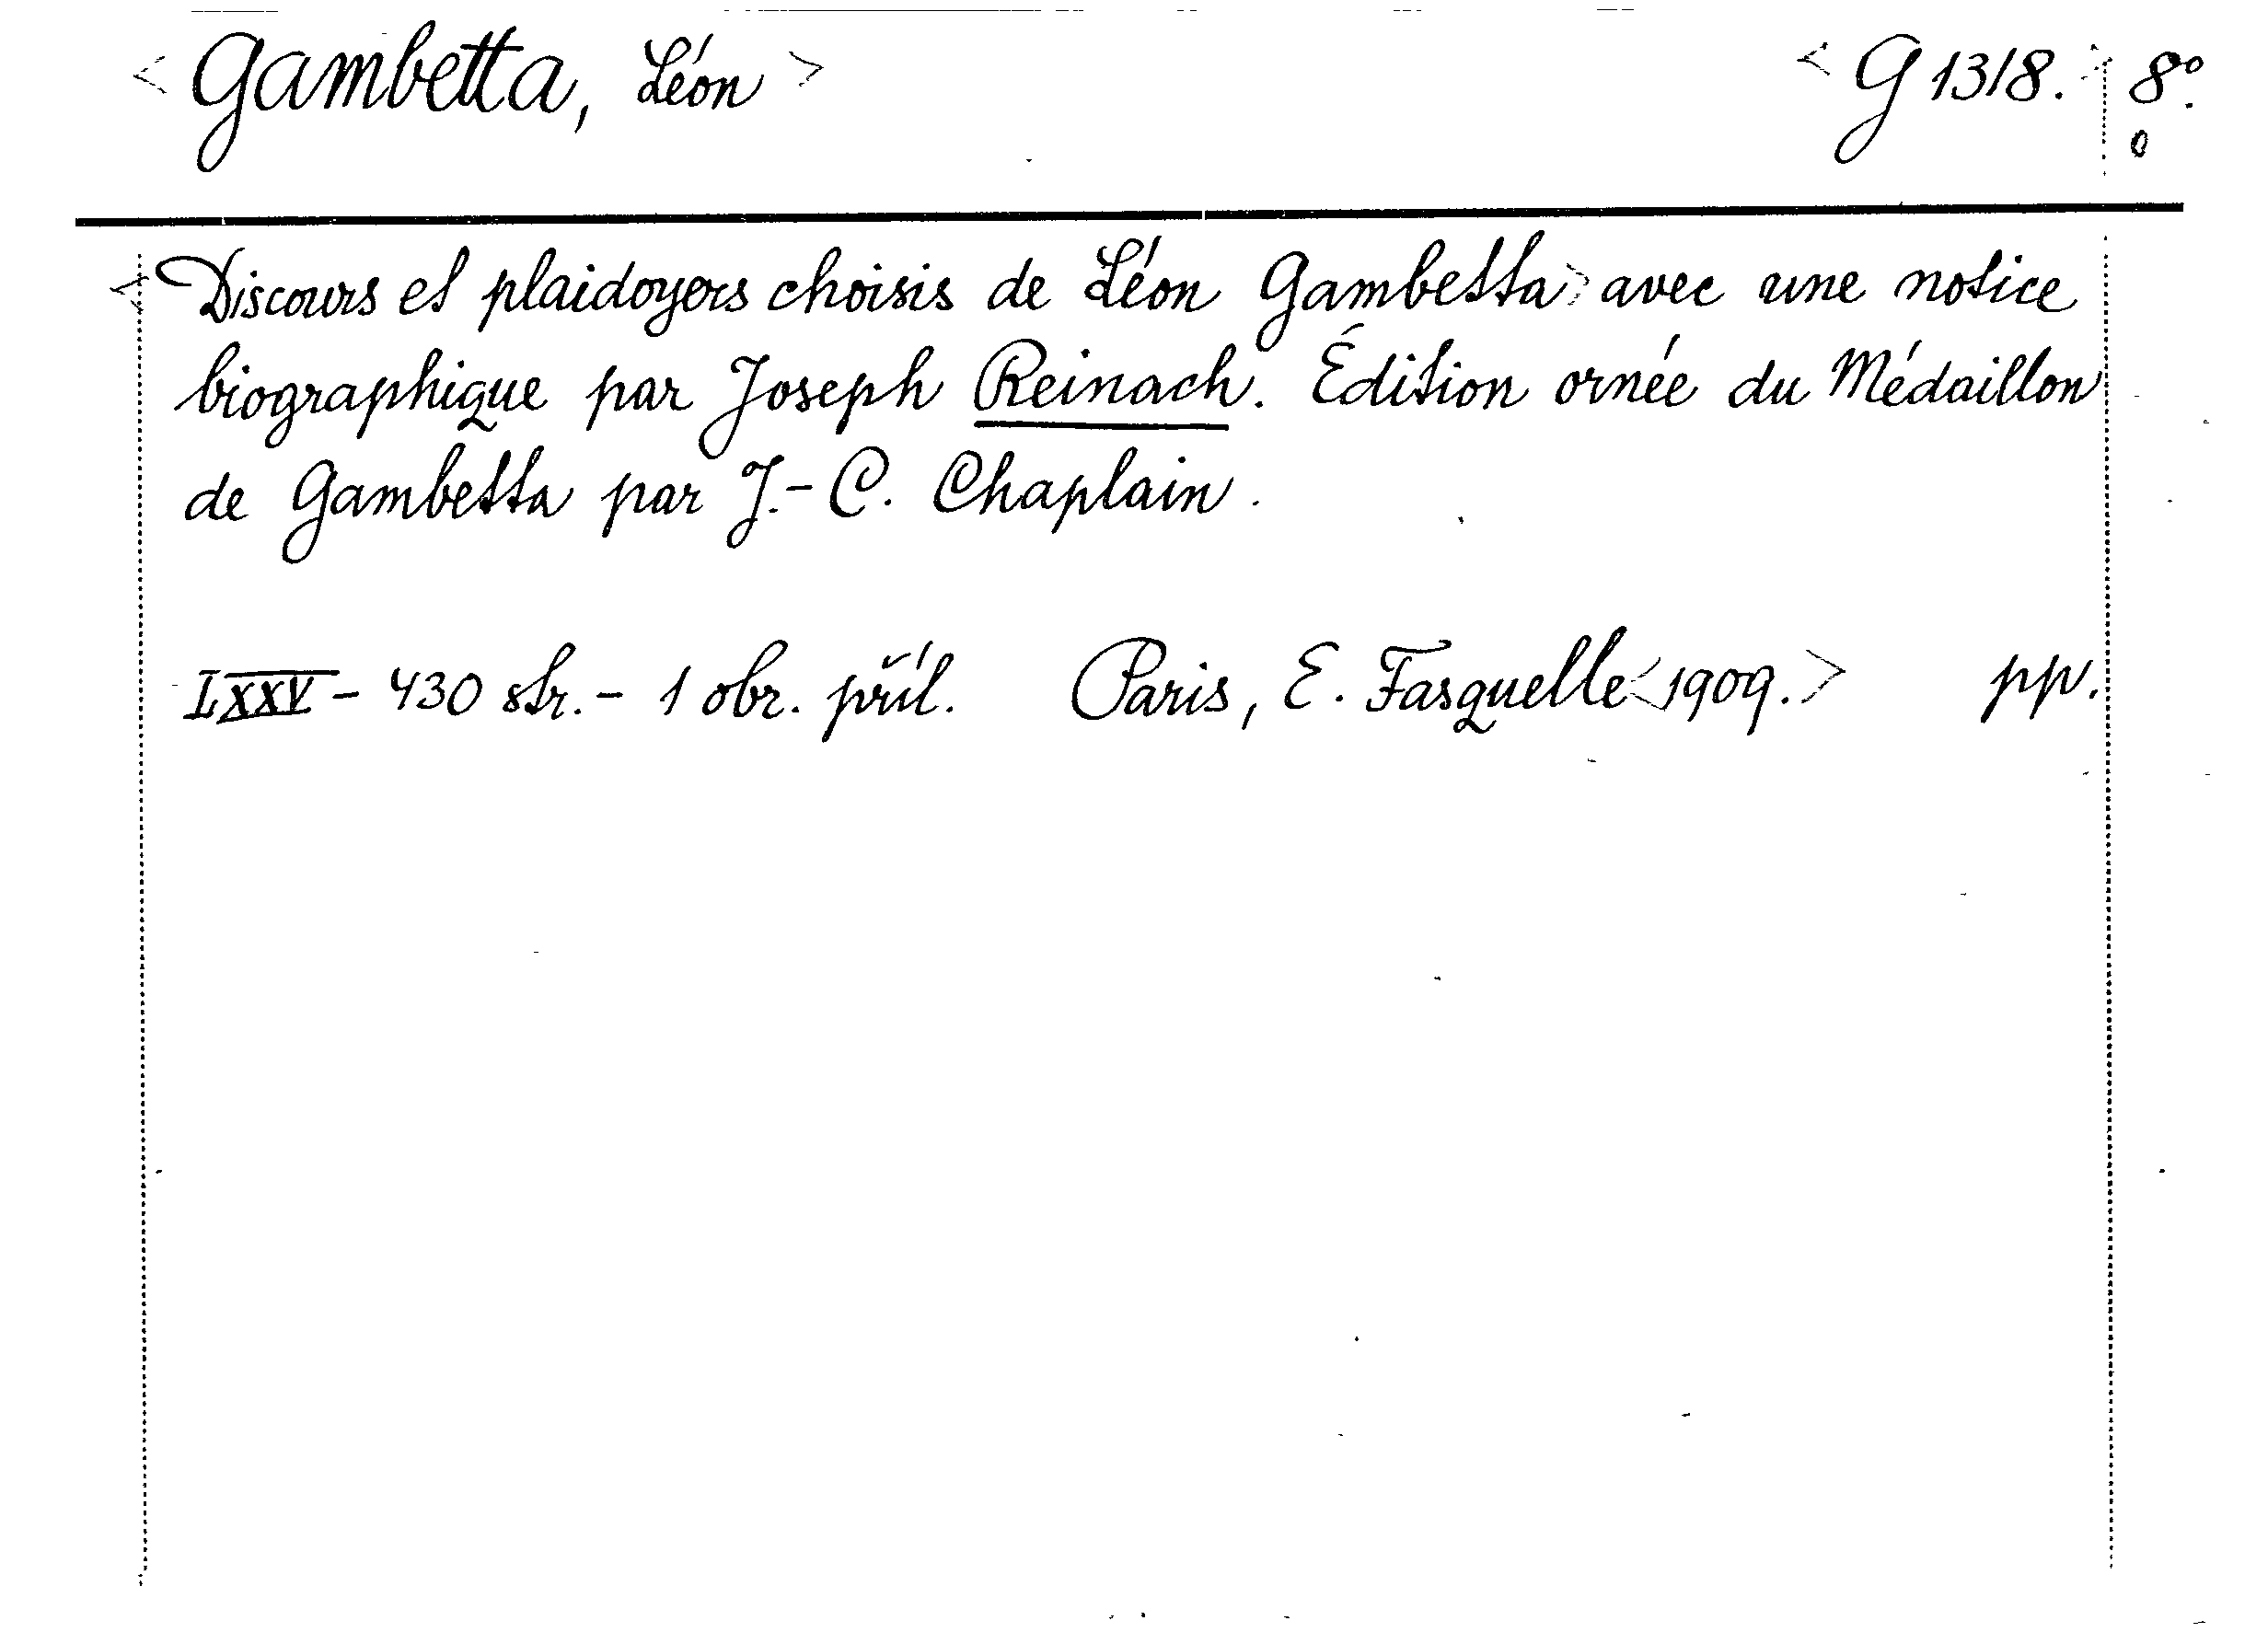 <Gambetta, Léon> <G 1318.> 8°.
o
<Discours et plaidoyers choisis de Léon Gambetta> avec une notice
biographique par Joseph Reinach. Édition ornée du Médaillon
de Gambetta par J.-C. Chaplain.
LXXV - 430 str. - 1 obr. příl. Paris, E. Fasquelle <1909.> pp.